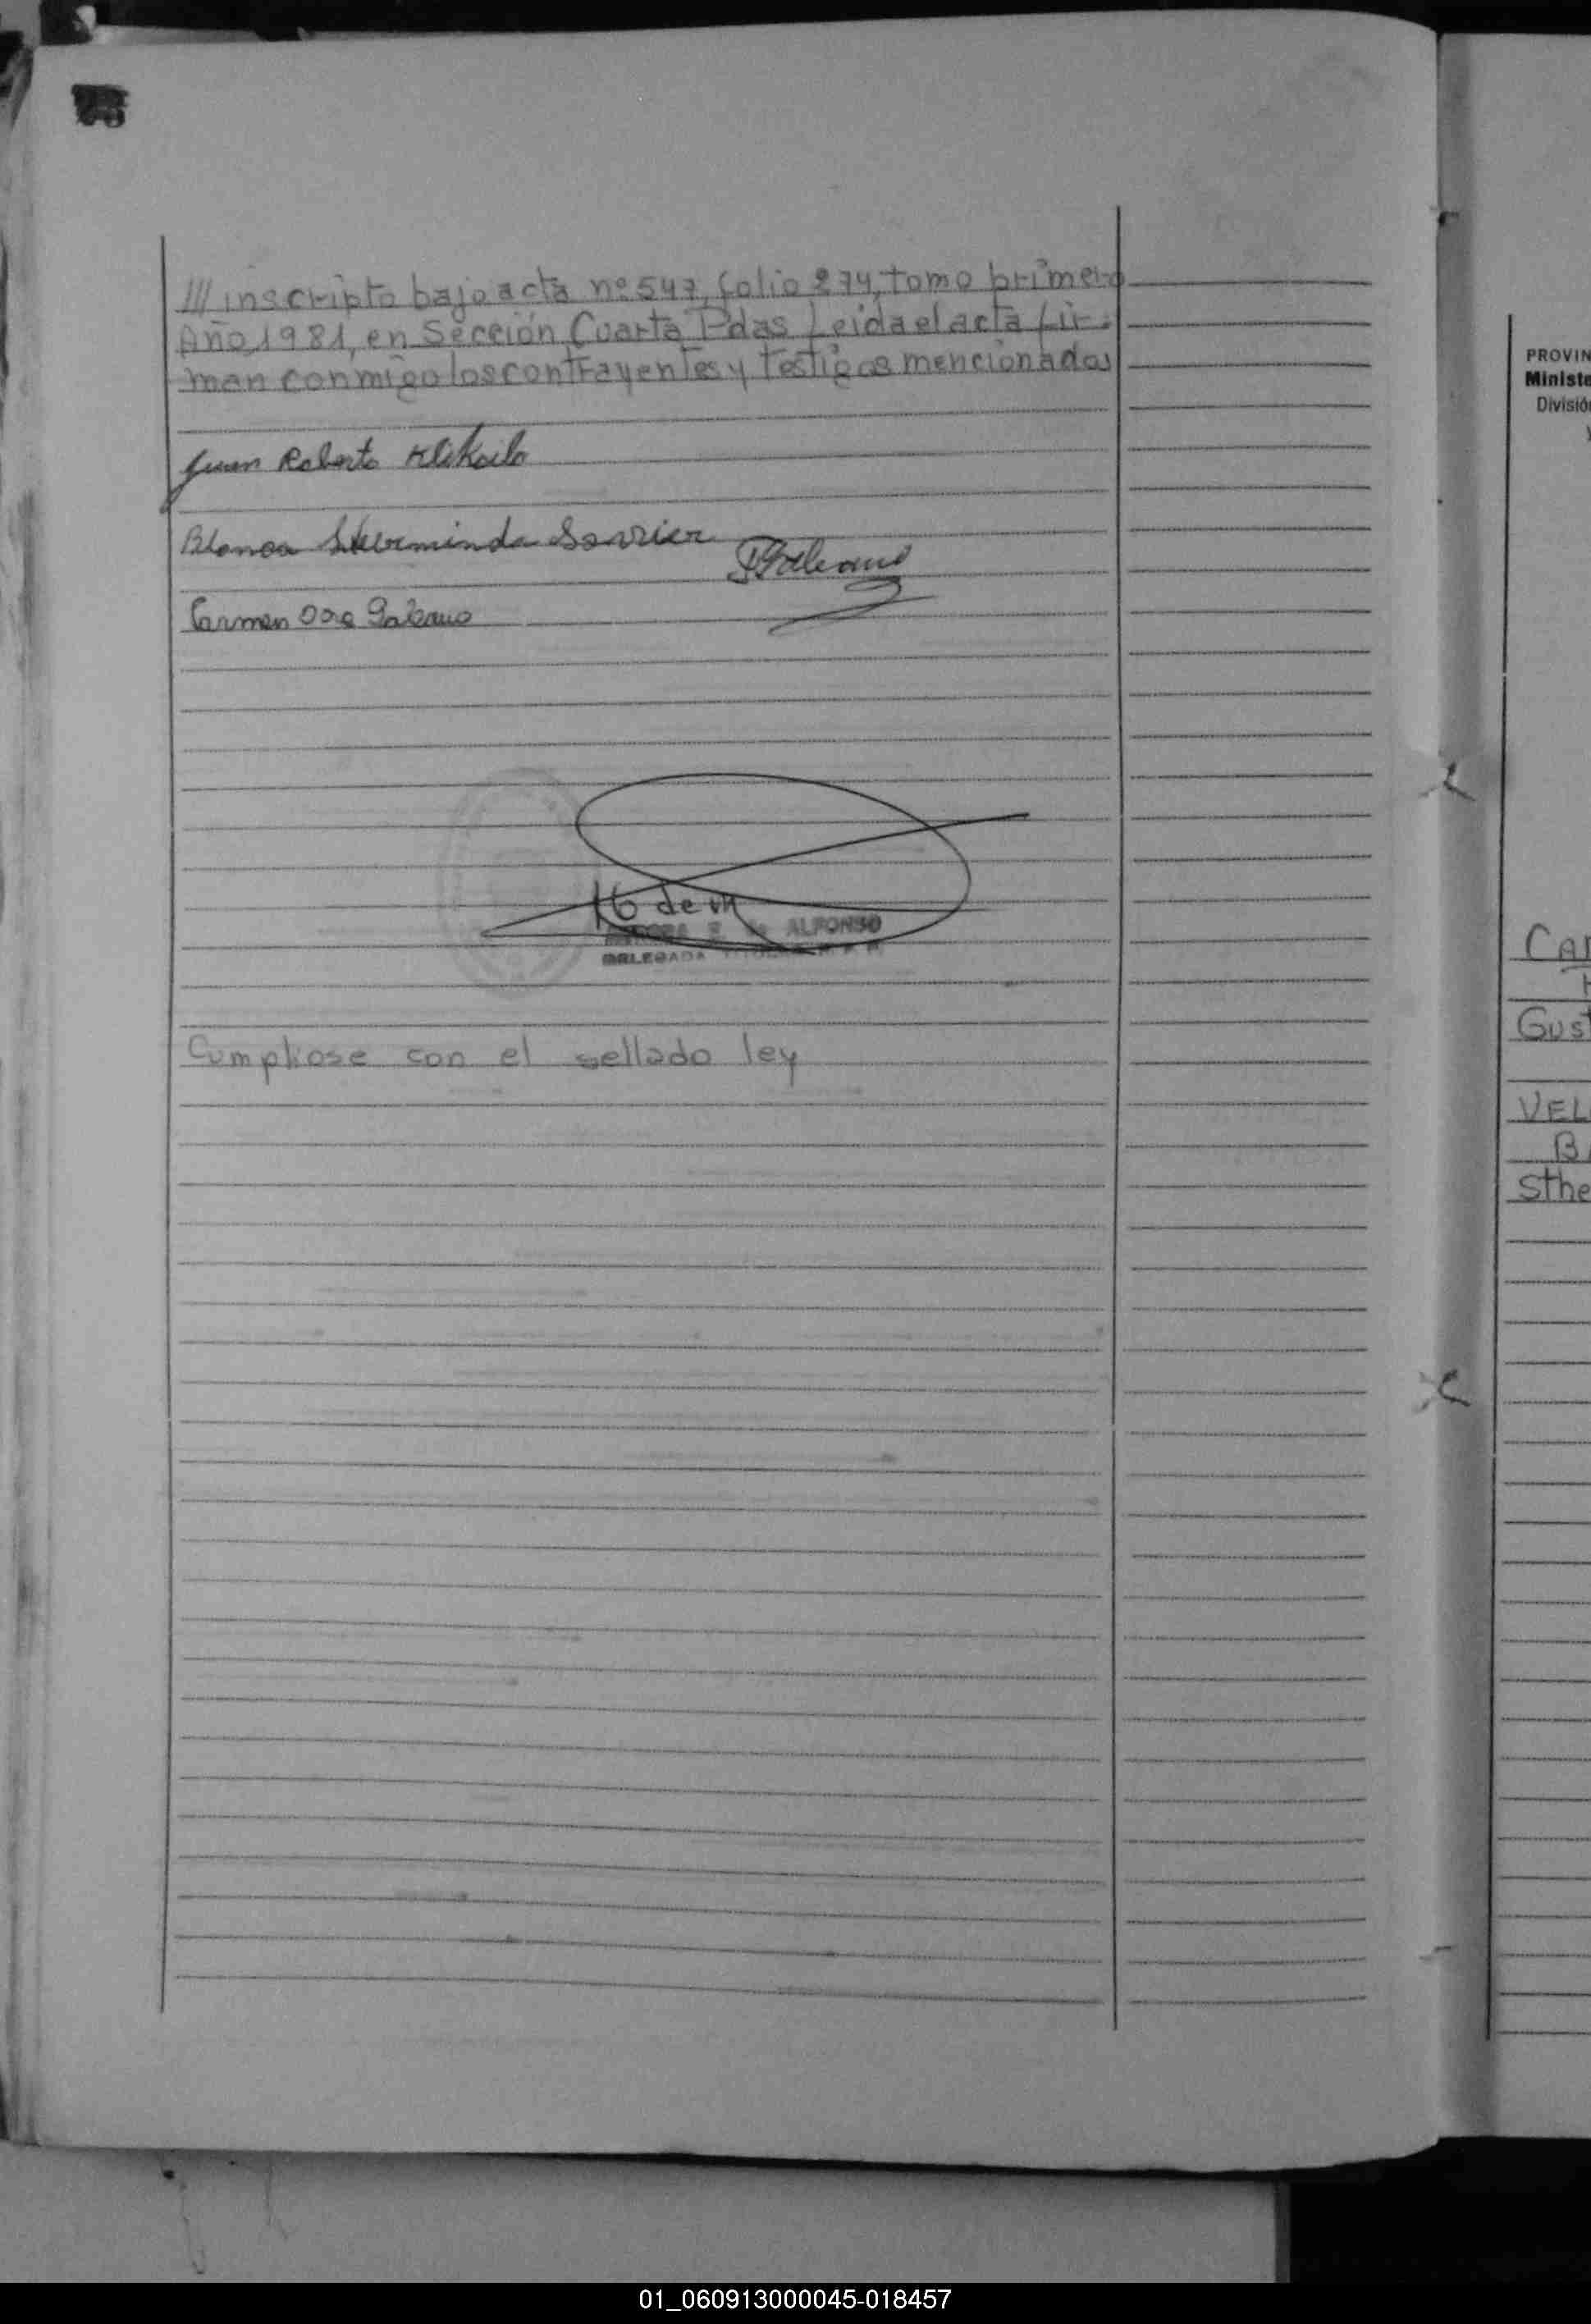 /// inscripto bajo acta nº 547, folio 274, tomo primero
Año 1981, en Sección Cuarta Pdas Leida el acta fir-
man conmigo los contrayentes y testigos mencionados
Juan Roberto
Blanca
Carmen
16 de
ALFONSO
DELEGADA
Cumpliose con el sellado ley
PROVIN
Ministe
Divisió
CAR
Gust
VEL
BA
Sthe
01_060913000045-018457